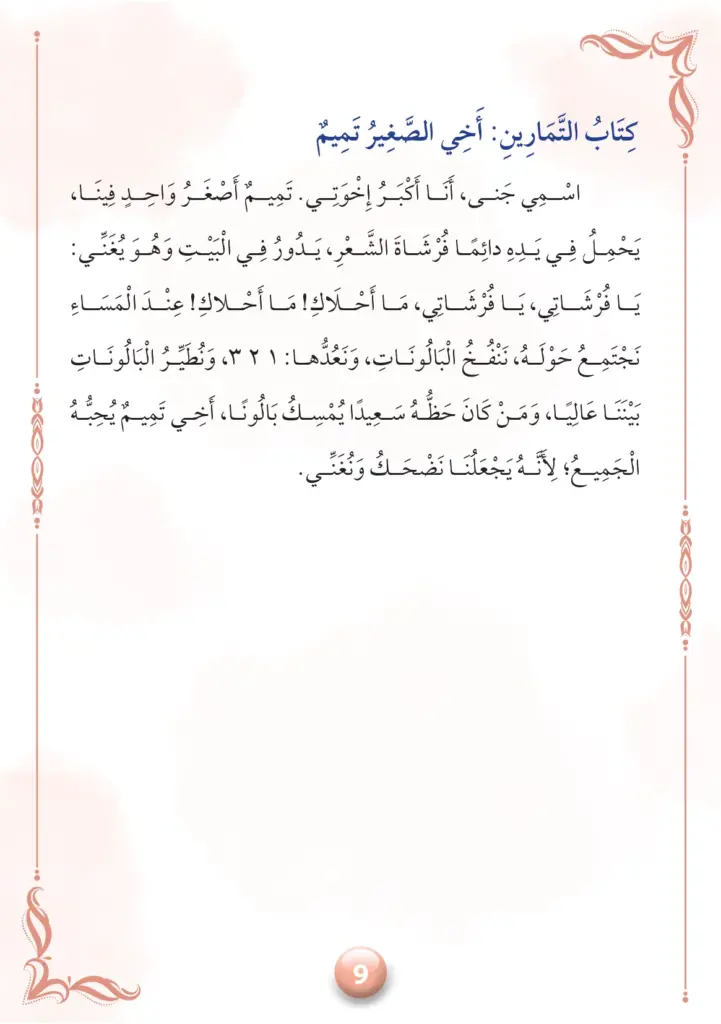 كِتَابُ التَّمَارِينِ: أَخِي الصَّغِيرُ تَمِيمٌ
اسْمِي جَنى، أَنَا أَكْبَرُ إِخْوَتِي. تَمِيمٌ أَصْغَرُ وَاحِدٍ فِينَا،
يَحْمِلُ فِي يَدِهِ دائِمًا فُرْشَاةَ الشَّعْرِ، يَدُورُ فِي الْبَيْتِ وَهُوَ يُغَنِّي:
يَا فُرْشَاتِي، يَا فُرْشَاتِي، مَا أَحْلَاكِ! مَا أَحْلاكِ! عِنْدَ الْمَسَاءِ
نَجْتَمِعُ حَوْلَهُ، نَنْفُخُ الْبَالُونَاتِ، وَنَعُدُّها: ١ ٢ ٣، وَنُطَيِّرُ الْبَالُونَاتِ
بَيْنَنَا عَالِيًا، وَمَنْ كَانَ حَظُّهُ سَعِيدًا يُمْسِكُ بَالُونًا، أَخِي تَمِيمٌ يُحِبُّهُ
الْجَمِيعُ؛ لِأَنَّهُ يَجْعَلُنَا نَضْحَكُ وَنُغَنِّي.
9